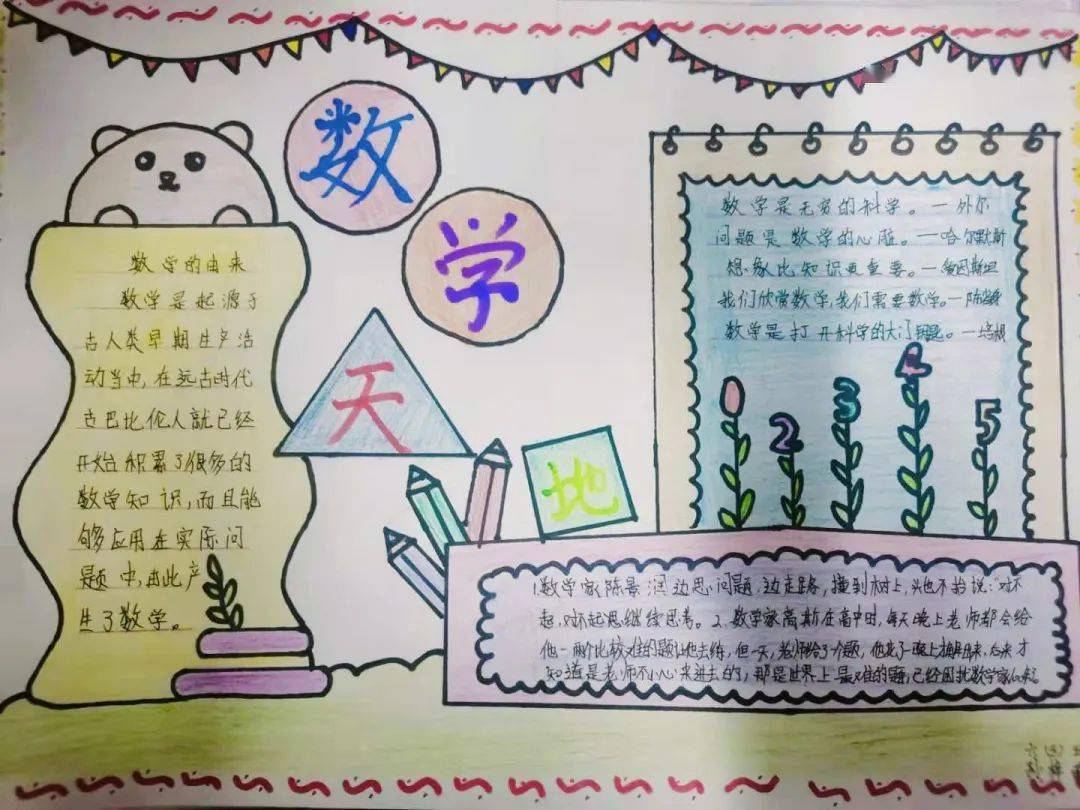 数
学
天
地
数学的由来
数学是起源于
古人类早期生产活
动当中,在远古时代
古巴比伦人就已经
开始积累了很多的
数学知识,而且能
够应用在实际问
题中,由此产
生了数学。
数学是无穷的科学。一外尔
问题是数学的心脏。一哈尔默斯
想象比知识更重要。一爱因斯坦
我们欣赏数学,我们需要数学。一陈省身
数学是打开科学的大门钥匙。一培根
1
2
3
4
5
1.数学家陈景润边思问题,边走路,撞到树上,头也不抬说:“对不
起,对不起思继续思考。2.数学家高斯在高中时,每天晚上老师都会给
他一两个比较难的题让他去练,但一天,老师给了一个题,他花了一晚上才
知道是老师不小心夹进去的,那是世界上最难的题,已经困扰数学家